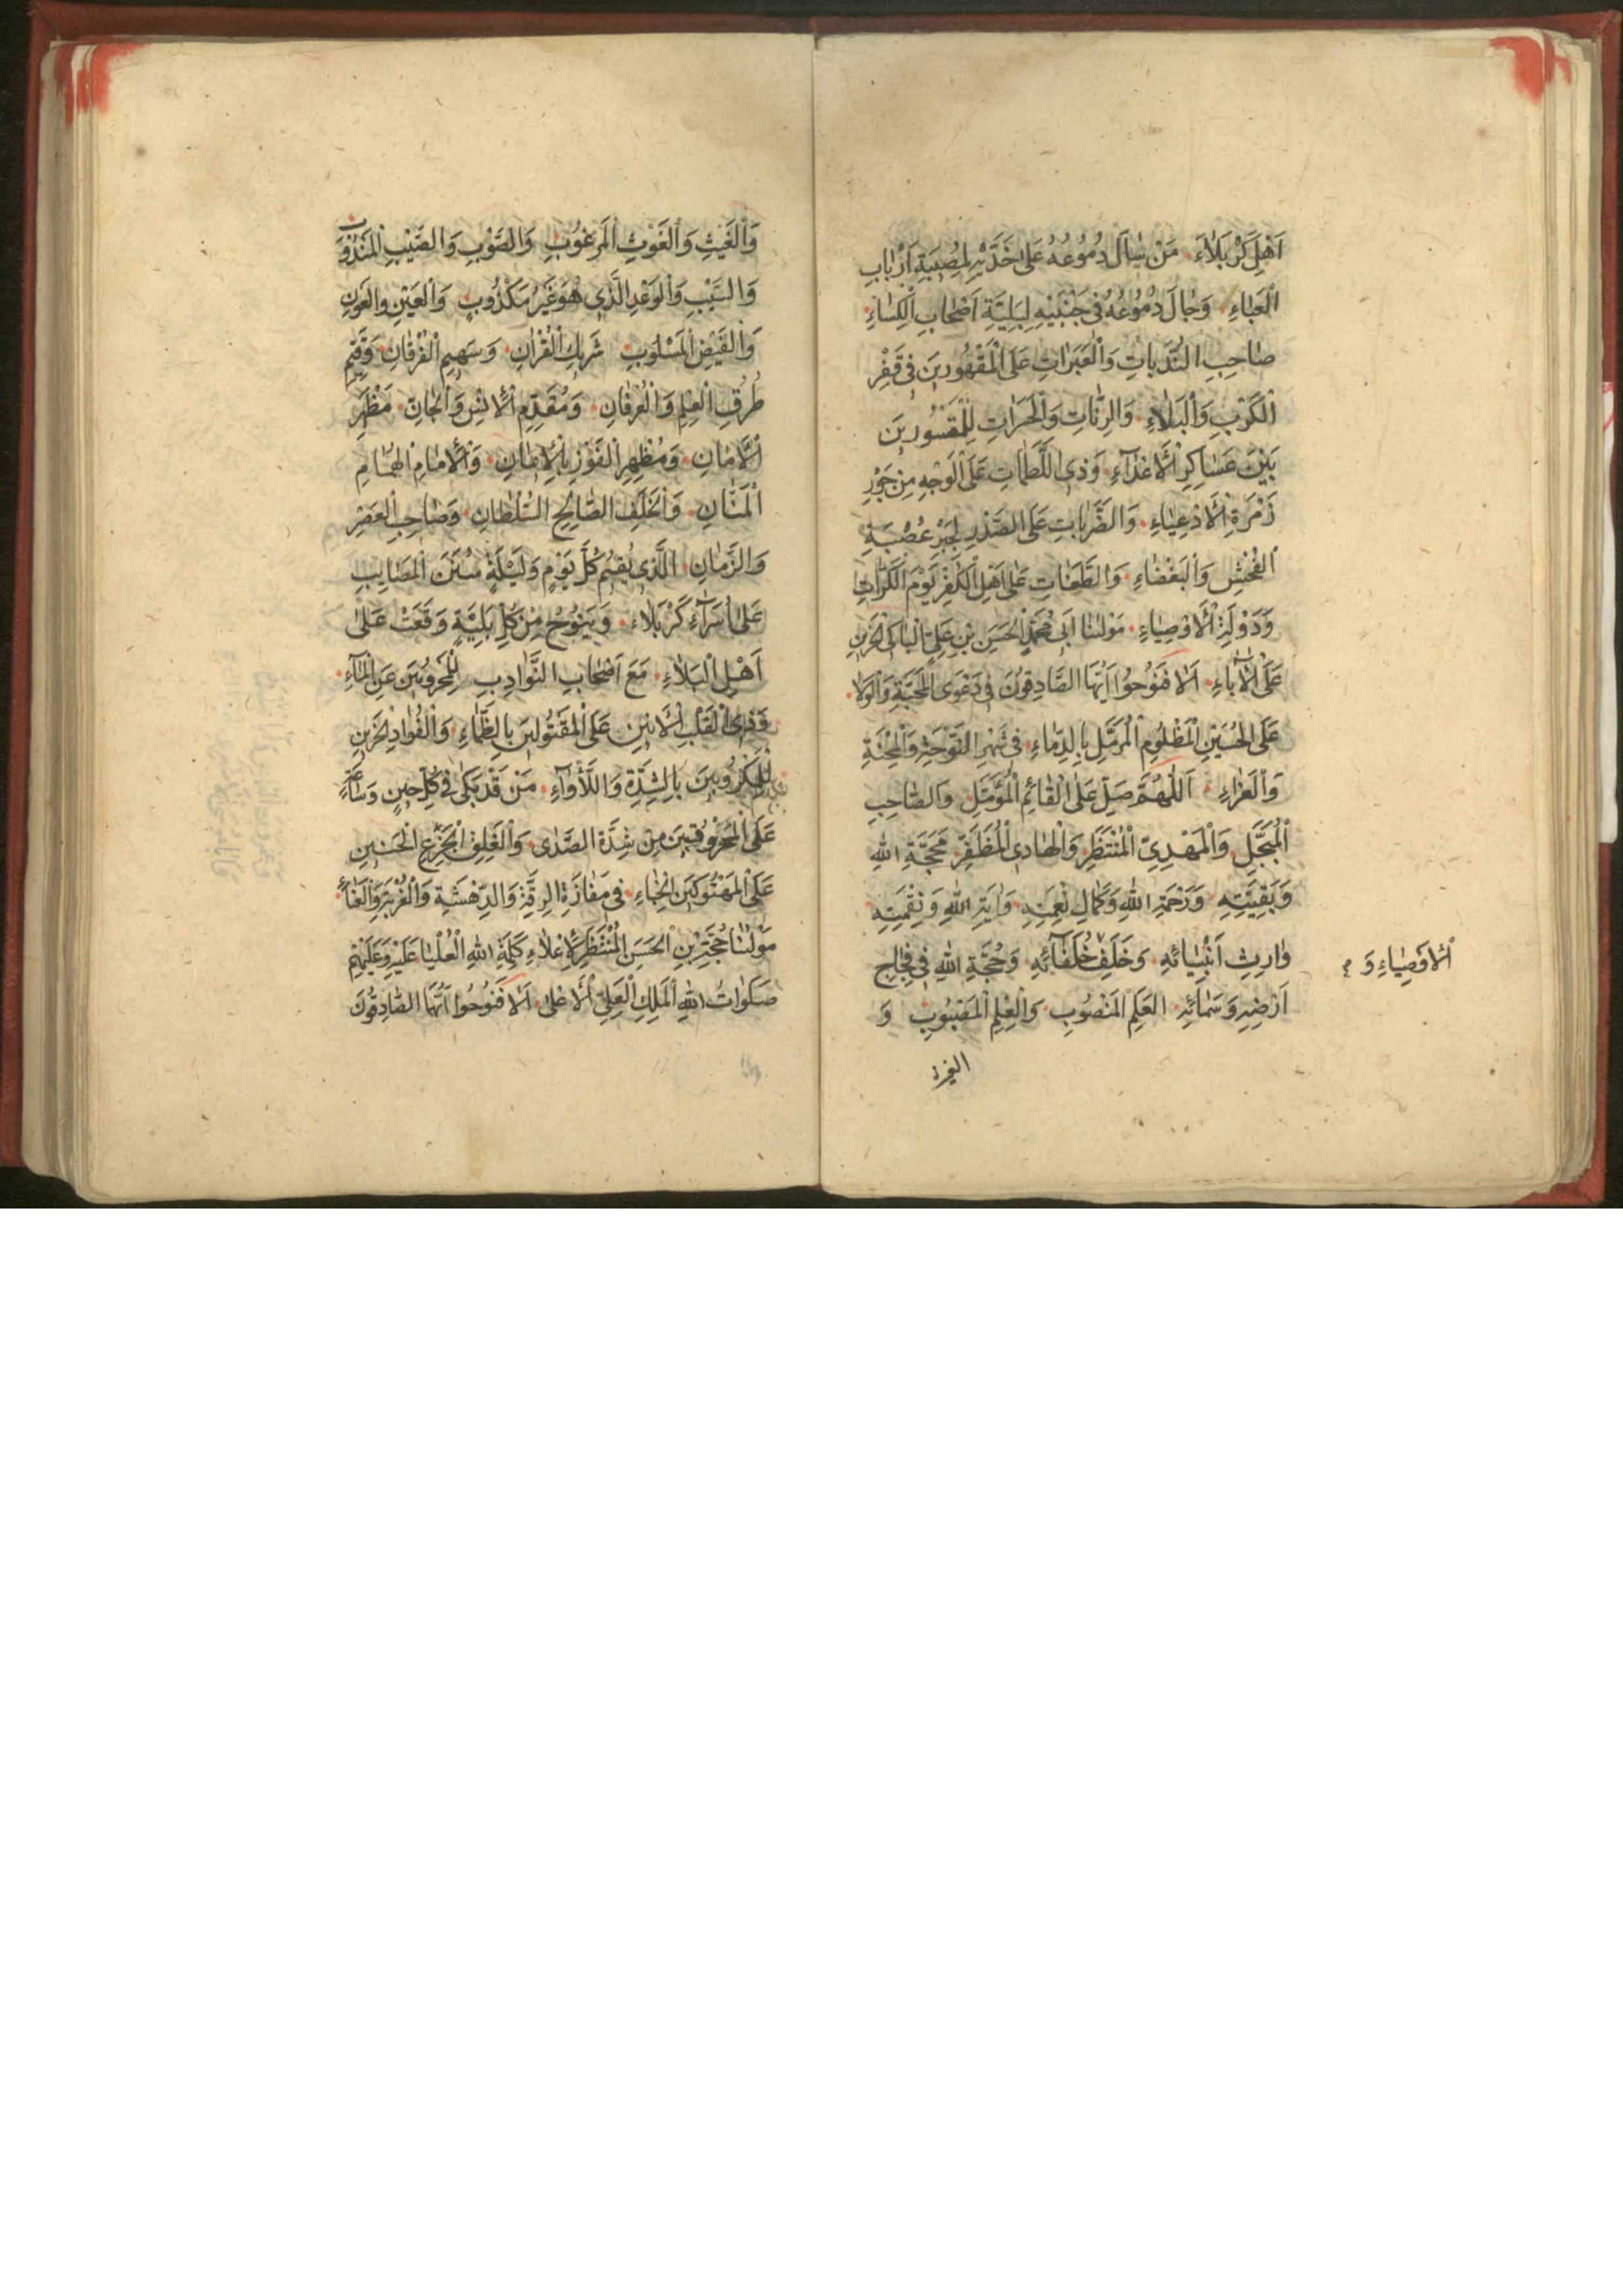 اَهْلِ كَرْبَلاٰءَ مَنْ سٰالَ دُمُوعُهُ عَلىٰ خَدَّيْهِ لِمُصِيبَةِ اَرْبٰابِ
الْعَبٰاءِ وَجٰالَ دُمُوعُهُ فى جَنْبَيْهِ لِبَلِيَّةِ اَصْحٰابِ الْكِسٰاءِ
صٰاحِبِ النُّدَبٰاتِ وَالْعَبَرٰاتِ عَلَى الْمَقْهُورِينَ فى قَفْرِ
الْكَرْبِ وَالْبَلاٰءِ وَالرَّنّٰاتِ وَالْحَسَرٰاتِ لِلْمَقْسُورِينَ
بَيْنَ عَسٰاكِرِ الْأَعْدٰآءِ وَذِى اللَّطَمٰاتِ عَلَى الْوَجْهِ مِنْ جَوْرِ
زُمْرَةِ الْأَدْعِيٰاءِ وَالضَّرَبٰاتِ عَلَى الصَّدْرِ لِجَبْرِ عُصْبَةِ
الْفُحْشِ وَالْبَغْضٰاءِ وَالطَّعَنٰاتِ عَلىٰ اَهْلِ الْكُفْرِ يَوْمَ الْكَرّٰاتِ
وَدَوْلَةِ الْأَوْصِيٰاءِ مَوْلٰنٰا اَبى مُحَمَّدٍ الْحَسَنِ بْنِ عَلِيٍّ الْبٰاكِى الْحَزِينِ
عَلَى الْأٰبٰاءِ اَلاٰ فَنُوحُوا اَيُّهَا الصّٰادِقُونَ فى دَعْوَى الْمَحَبَّةِ وَالْوِلاٰ
عَلَى الْحُسَيْنِ الْمَظْلُومِ الْمُرَمَّلِ بِالدِّمٰاءِ فى شَهْرِ النَّوْحَةِ وَالْمِحْنَةِ
وَالْعَزٰاءِ اَللّٰهُمَّ صَلِّ عَلَى الْقٰائِمِ الْمُؤَمَّلِ وَالصّٰاحِبِ
الْمُبَجَّلِ وَالْمَهْدِيِّ الْمُنْتَظَرِ وَالْهٰادِى الْمُظَفَّرِ مَحَجَّةِ اللهِ
وَبَقِيَّتِهِ وَرَحْمَةِ اللهِ وَكَمٰالِ نِعْمَتِهِ وَاٰيَةِ اللهِ وَنِقْمَتِهِ
وٰارِثِ اَنْبِيٰائِهِ وَخَلَفِ خُلَفٰآئِهِ وَحُجَّةِ اللهِ فى فِجٰاجِ
الْأَوْصِيٰاءِ وَ
اَرْضِهِ وَسَمٰائِهِ الْعَلَمِ الْمَنْصُوبِ وَالْعِلْمِ الْمَصْبُوبِ وَ
وَالْغَيْثِ وَالْغَوْثِ الْمَرْغُوبِ وَالصَّوْبِ وَالصَّيِّبِ الْمَنْدُوبِ
وَالسَّيْبِ وَالْوَعْدِ الَّذى هُوَ غَيْرُ مَكْذُوبٍ وَالْعَيْنِ وَالْعَوْنِ
وَالْفَيْضِ الْمَسْلُوبِ شَرِيكِ الْقُرْاٰنِ وَسَهِيمِ الْفُرْقٰانِ وَقَيِّمِ
طُرُقِ الْعِلْمِ وَالْعِرْفٰانِ وَمُقَدَّمِ الْأِنْسِ وَالْجٰانِّ مَظْهَرِ
الْأَمٰانِ وَمُظْهِرِ الْفَوْزِ بِالْأِيمٰانِ وَالْأِمٰامِ الْهُمٰامِ
الْمَنّٰانِ وَالْخَلَفِ الصّٰالِحِ السُّلْطٰانِ وَصٰاحِبِ الْعَصْرِ
وَالزَّمٰانِ الَّذى يُقيمُ كُلَّ يَوْمٍ وَلَيْلَةٍ سُنَنَ الْمَصٰايِبِ
عَلىٰ اُسَرٰآءِ كَرْبَلاٰءَ وَيَنُوحُ مِنْ كُلِّ بَلِيَّةٍ وَقَعَتْ عَلىٰ
اَهْلِ الْبَلاٰءِ مَعَ اَصْحٰابِ النَّوٰادِبِ لِلْمَحْرُومينَ عَنِ الْمٰآءِ
وَذِى الْقَلْبِ الْأَنينِ عَلَى الْمَقْتُولينَ بِالظَّمٰاءِ وَالْفُؤٰادِ الْحَزينِ
لِلْمَكْرُوبينَ بِالشِّدَّةِ وَاللَّأْوٰآءِ مَنْ قَدْ بَكىٰ فى كُلِّ حينٍ وَسٰاعَةٍ
عَلَى الْمَحْرُوقينَ مِنْ شِدَّةِ الصَّدٰى وَ
عَلَى الْمَهْتُوكينَ الْخِبٰاءِ فى مَفٰازَةِ الرِّقَّةِ وَالدَّهْشَةِ وَالْغُرْبَةِ وَالْعَنٰاءِ
مَوْلٰنٰا حُجَّةِ بْنِ الْحَسَنِ الْمُنْتَظَرِ لِأِعْلاٰءِ كَلِمَةِ اللهِ الْعُلْيٰا عَلَيْهِ وَعَلَيْهِمْ
صَلَوٰاتُ اللهِ الْمَلِكِ الْعَلِيِّ الْأَعْلىٰ اَلاٰ فَنُوحُوا اَيُّهَا الصّٰادِقُونَ